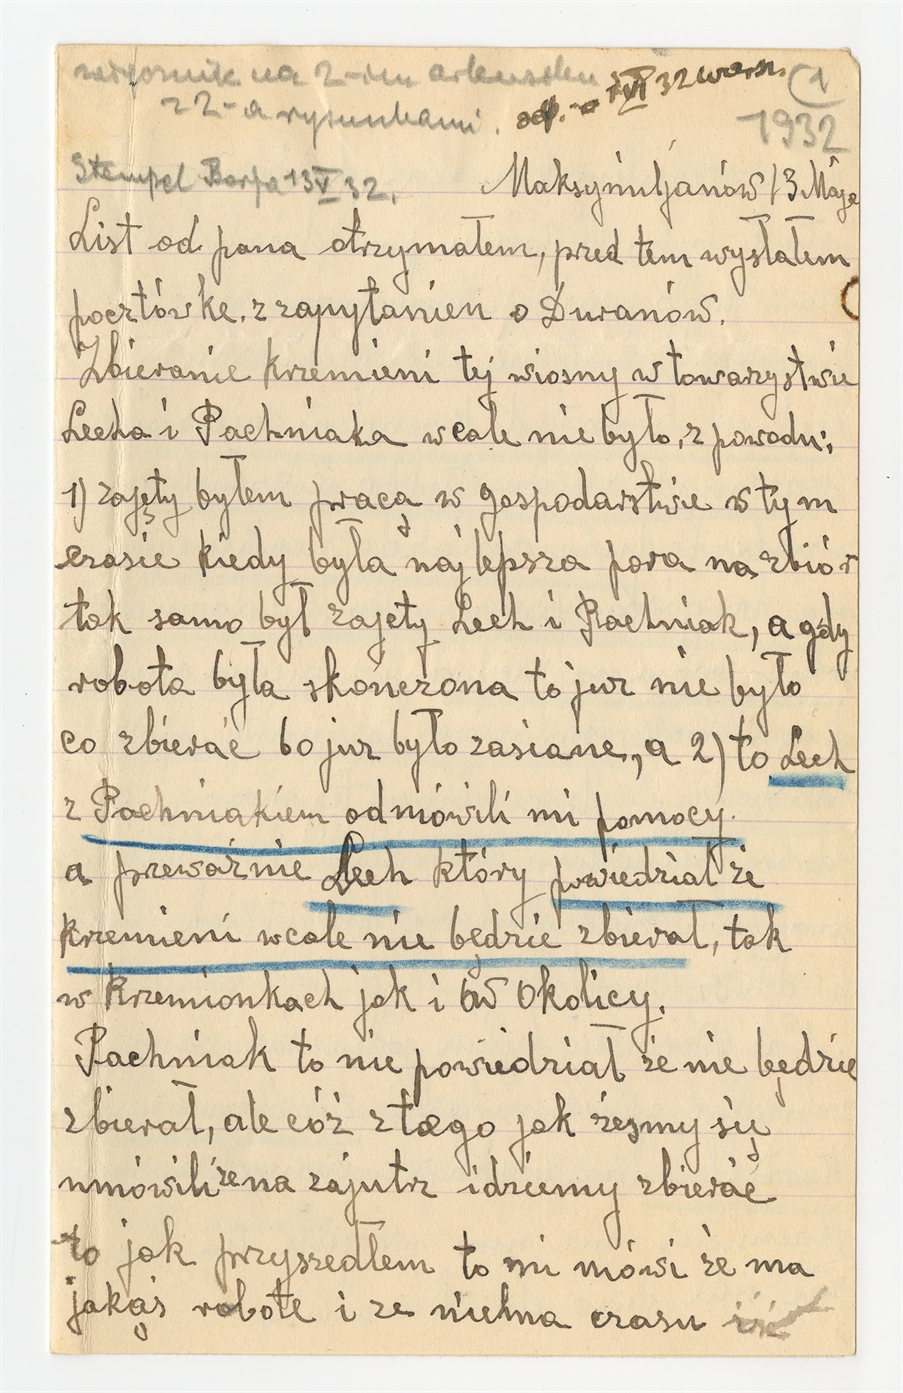 na 2-im arkuszku odp. 1 VI 32 warsz. 1
z 2-a rysunkami. 1932
Stempel Borja 13 V 32.
Maksymiljanów 13 Maja
List od pana otrzymałem, pred tem wysłałem
pocztówke. z zapytanien o Duranów.
Zbieranie krzemieni tej wiosny w towarzystwie
Lecha i Pachniaka wcale nie było, z powodu:
1) zajęty byłem pracą w gospodarstwie w tym
czasie kiedy była najlepsza pora na zbiór
tak samo był zajety Lech i Pachniak, a gdy
robota była skończona to juz nie było
co zbierać bo juz było zasiane, a 2) to Lech
z Pachniakiem odmówili mi pomocy.
a przeważnie Lech który powiedział że
krzemieni wcale nie będzie zbierał, tak
w Krzemionkach jak i w Okolicy.
Pachniak to nie powiedział że nie będzie
zbierał, ale cóż z tego jak żeśmy się
umówili że na zajutrz idziemy zbierać
to jak przyszedłem to mi mówi że ma
jakąś robote i ze niema czasu iść